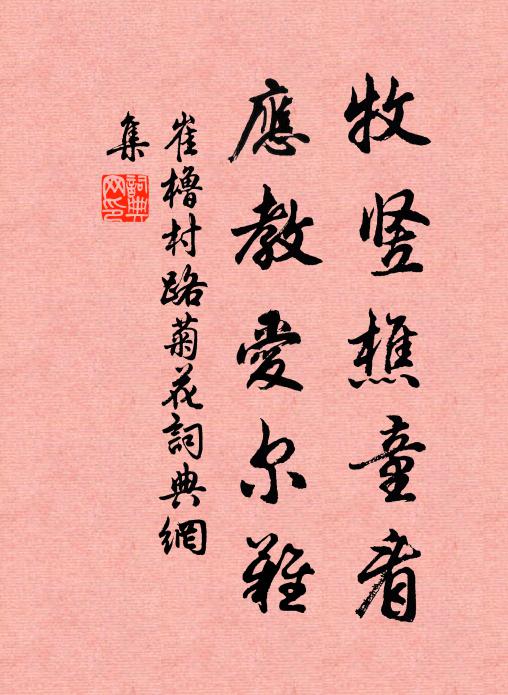 牧竖樵童看
應教愛尔難
崔櫓村路菊花詞典網
集
詞典
网印